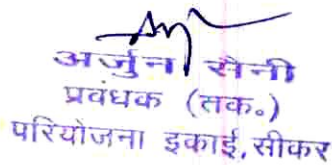 अर्जुन सैनी
प्रबंधक (तक॰)
परियोजना इकाई, सीकर